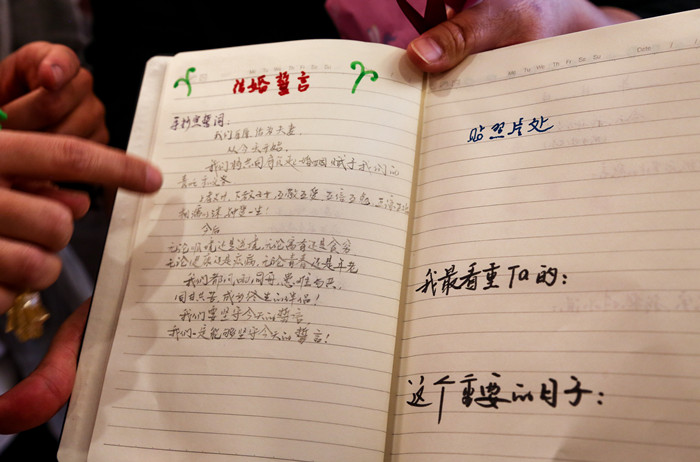 结婚誓言
手抄宣誓词:
我们自愿结为夫妻,
从今天开始,
我们将共同肩负起婚姻赋予我们的
责任和义务
上孝父母,下教子女,互敬互爱,互信互勉,互谅互让
相濡以沫,钟爱一生!
今后
无论顺境还是逆境,无论富有还是贫穷
无论健康还是疾病,无论青春还是年老
我们都风雨同舟,患难与共,
同甘共苦,成为终生的伴侣!
我们要坚守今天的誓言
我们一定能够坚守今天的誓言!
贴照片处
我最看重Ta的:
这个重要的日子: